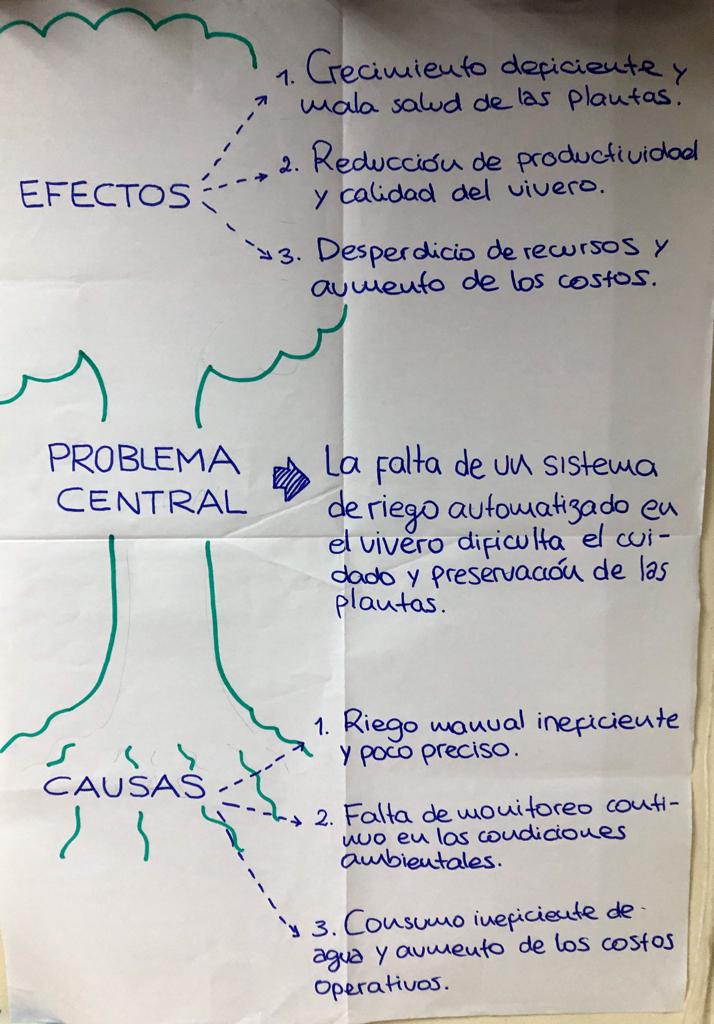 1. Crecimiento deficiente y
mala salud de las plantas.
EFECTOS
2. Reducción de productividad
y calidad del vivero.
3. Desperdicio de recursos y
aumento de los costos.
PROBLEMA
CENTRAL
La falta de un sistema
de riego automatizado en
el vivero dificulta el cui-
dado y preservación de las
plantas.
CAUSAS
1. Riego manual ineficiente
y poco preciso.
2. Falta de monitoreo conti-
nuo en las condiciones
ambientales.
3. Consumo ineficiente de
agua y aumento de los costos
operativos.